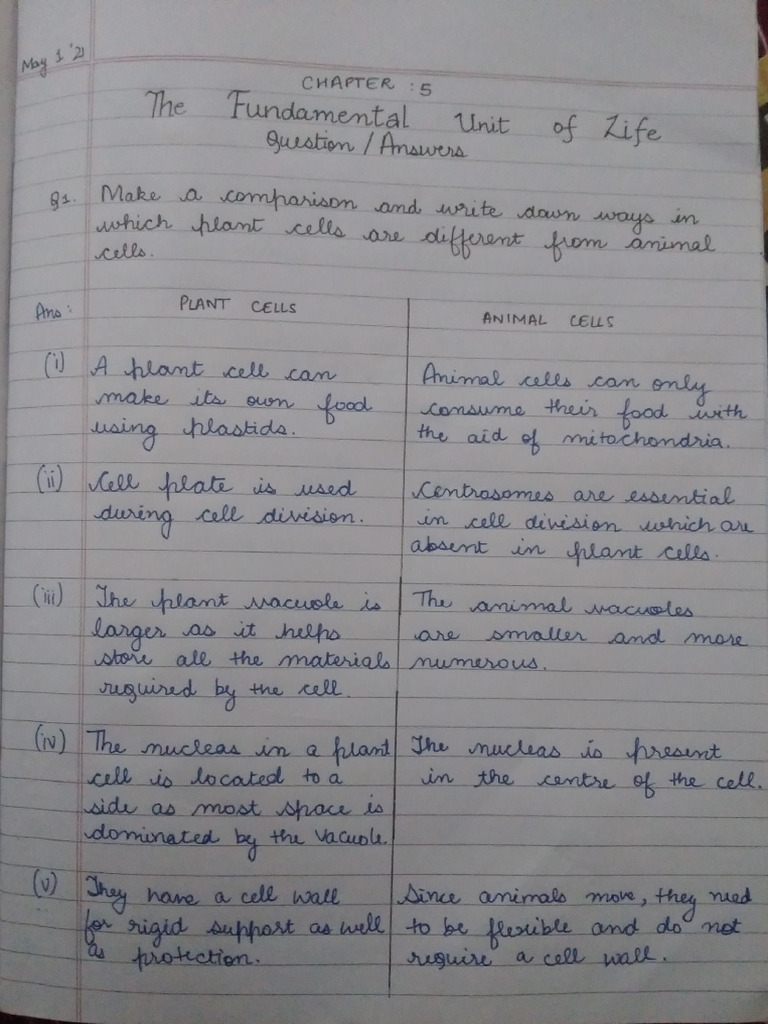 May 1 '21
CHAPTER : 5
The Fundamental Unit of Life
Question / Answers
Q1. Make a comparison and write down ways in
which plant cells are different from animal
cells.
Ans: PLANT CELLS
ANIMAL CELLS
(i) A plant cell can
make its own food
using plastids.
Animal cells can only
consume their food with
the aid of mitochondria.
(ii) Cell plate is used
during cell division.
Centrasomes are essential
in cell division which are
absent in plant cells.
(iii) The plant vacuole is
larger as it helps
store all the materials
required by the cell.
The animal vacuoles
are smaller and more
numerous.
(iv) The nucleas in a plant
cell is located to a
side as most space is
dominated by the vacuole.
The nucleas is present
in the centre of the cell.
(v) They have a cell wall
for rigid support as well
as protection.
Since animals move, they need
to be flexible and do not
require a cell wall.